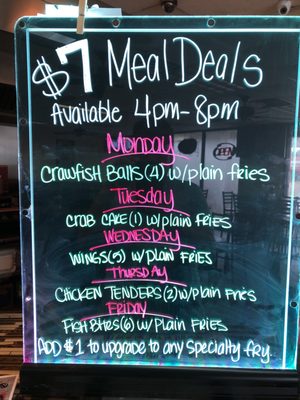 $7 Meal Deals
Available 4pm-8pm
Monday
Crawfish Balls (4) w/plain fries
Tuesday
CRAB CAKE (1) w/plain FRIES
WEDNESDAY
WINGS (5) w/ plain FRIES
THURSDAY
CHICKEN TENDERS (2) w/Plain Fries
FRIDAY
FISH Bites (6) w/ Plain FRIES
ADD $1 to upgrade to any Specialty fry.
OPEN